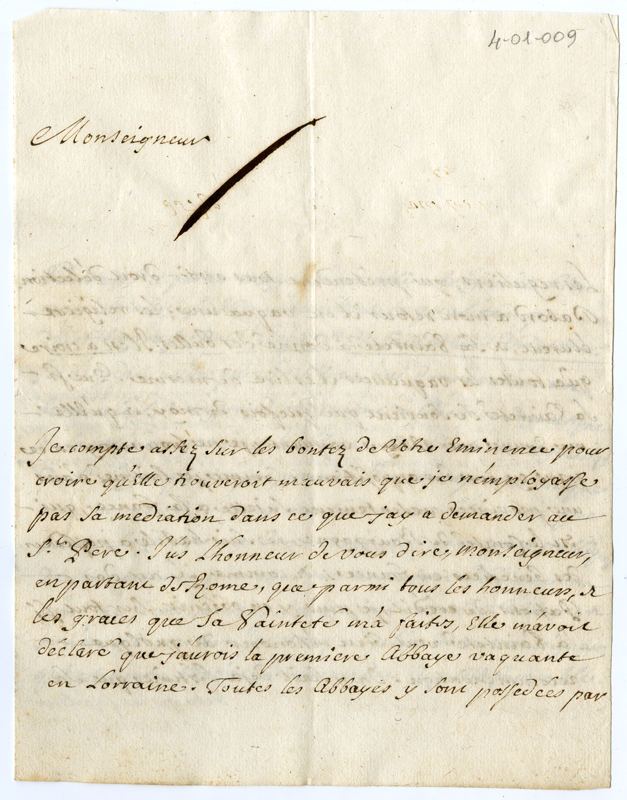 4-01-009
Monseigneur
Je compte assez sur les bontez de Votre Eminence pour
croire qu'Elle trouveroit mauvais que je n'employasse
pas sa mediation dans ce que j'ay a demander au
St. Pere. J'us l'honneur de vous dire, Monseigneur,
en partant de Rome, que parmi tous les honneurs, &
les graces que Sa Sainteté m'a faites, Elle m'avoit
déclaré que j'aurois la premiere Abbaye vaquante
en Lorraine. Toutes les Abbayes y sont possedées par